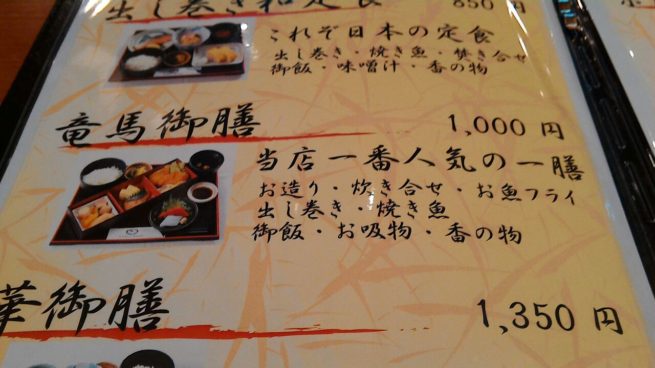 出し巻き和定食 850 円
これぞ日本の定食
出し巻き・焼き魚・焚き合せ
御飯・味噌汁・香の物
竜馬御膳 1,000 円
当店一番人気の一膳
お造り・炊き合せ・お魚フライ
出し巻き・焼き魚
御飯・お吸物・香の物
華御膳 1,350 円